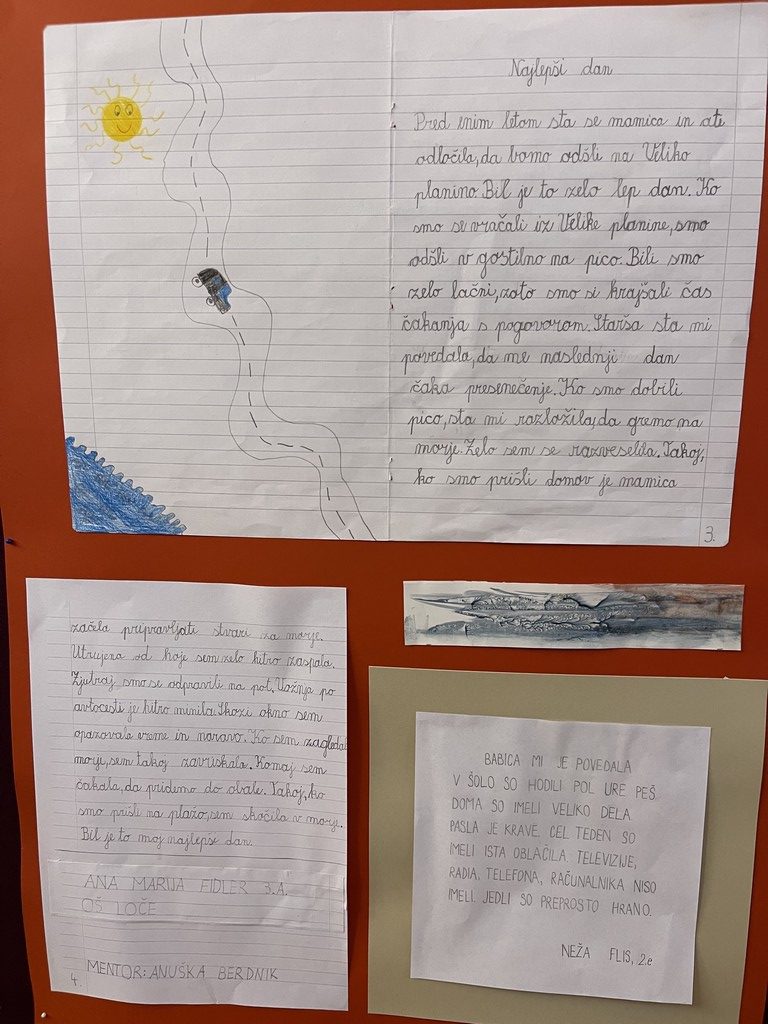 Najlepši dan
Pred enim letom sta se mamica in ati
odločila, da bomo odšli na Veliko
planino. Bil je to zelo lep dan. Ko
smo se vračali iz Velike planine, smo
odšli v gostilno na pico. Bili smo
zelo lačni, zato smo si krajšali čas
čakanja s pogovorom. Starša sta mi
povedala, da me naslednji dan
čaka presenečenje. Ko smo dobili
pico, sta mi razložila, da gremo na
morje. Zelo sem se razveselila. Takoj,
ko smo prišli domov je mamica
3.
začela pripravljati stvari za morje.
Utrujena od hoje sem zelo hitro zaspala.
Zjutraj smo se odpravili na pot. Vožnja po
avtocesti je hitro minila. Skozi okno sem
opazovala vreme in naravo. Ko sem zagledala
morje, sem takoj zavriskala. Komaj sem
čakala, da pridemo do obale. Takoj, ko
smo prišli na plažo, sem skočila v morje.
Bil je to moj najlepši dan.
ANA MARIJA FIDLER 3.A
OŠ LOČE
MENTOR: ANUŠKA BERDNIK
4.
BABICA MI JE POVEDALA
V ŠOLO SO HODILI POL URE PEŠ.
DOMA SO IMELI VELIKO DELA.
PASLA JE KRAVE. CEL TEDEN SO
IMELI ISTA OBLAČILA. TELEVIZIJE,
RADIA, TELEFONA, RAČUNALNIKA NISO
IMELI. JEDLI SO PREPROSTO HRANO.
NEŽA FLIS, 2.e